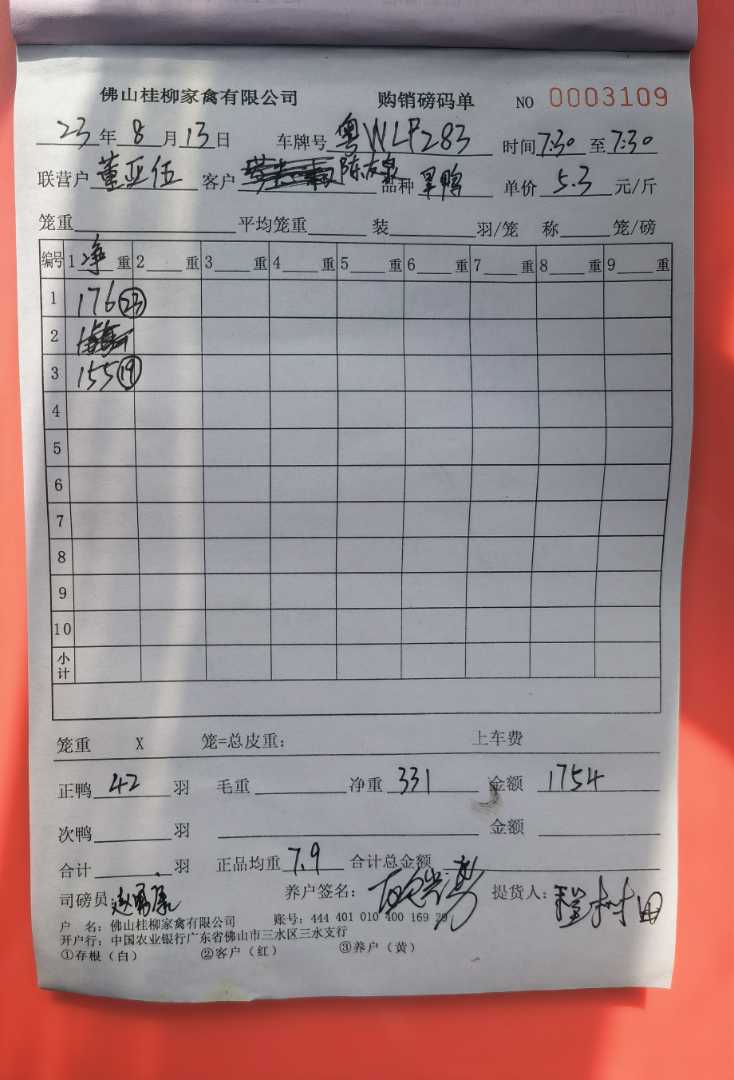 佛山桂柳家禽有限公司 购销磅码单 NO 0003109
23年8月13日 车牌号 粤WLF283 时间7:30至7:30
联营户 董亚伍 客户 陈友泉 品种 旱鸭 单价 5.3 元/斤
笼重 平均笼重 装 羽/笼 称 笼/磅
编号 1 净 重 2 重 3 重 4 重 5 重 6 重 7 重 8 重 9 重
1 176 23
2
3 155 19
4
5
6
7
8
9
10
小计
笼重 X 笼=总皮重: 上车费
正鸭 42 羽 毛重 净重 331 金额 1754
次鸭 羽 金额
合计 羽 正品均重 7.9 合计总金额
司磅员: 养户签名: 提货人:
户 名: 佛山桂柳家禽有限公司 账号: 444 401 010 400 169 29
开户行: 中国农业银行广东省佛山市三水区三水支行
①存根(白) ②客户(红) ③养户(黄)